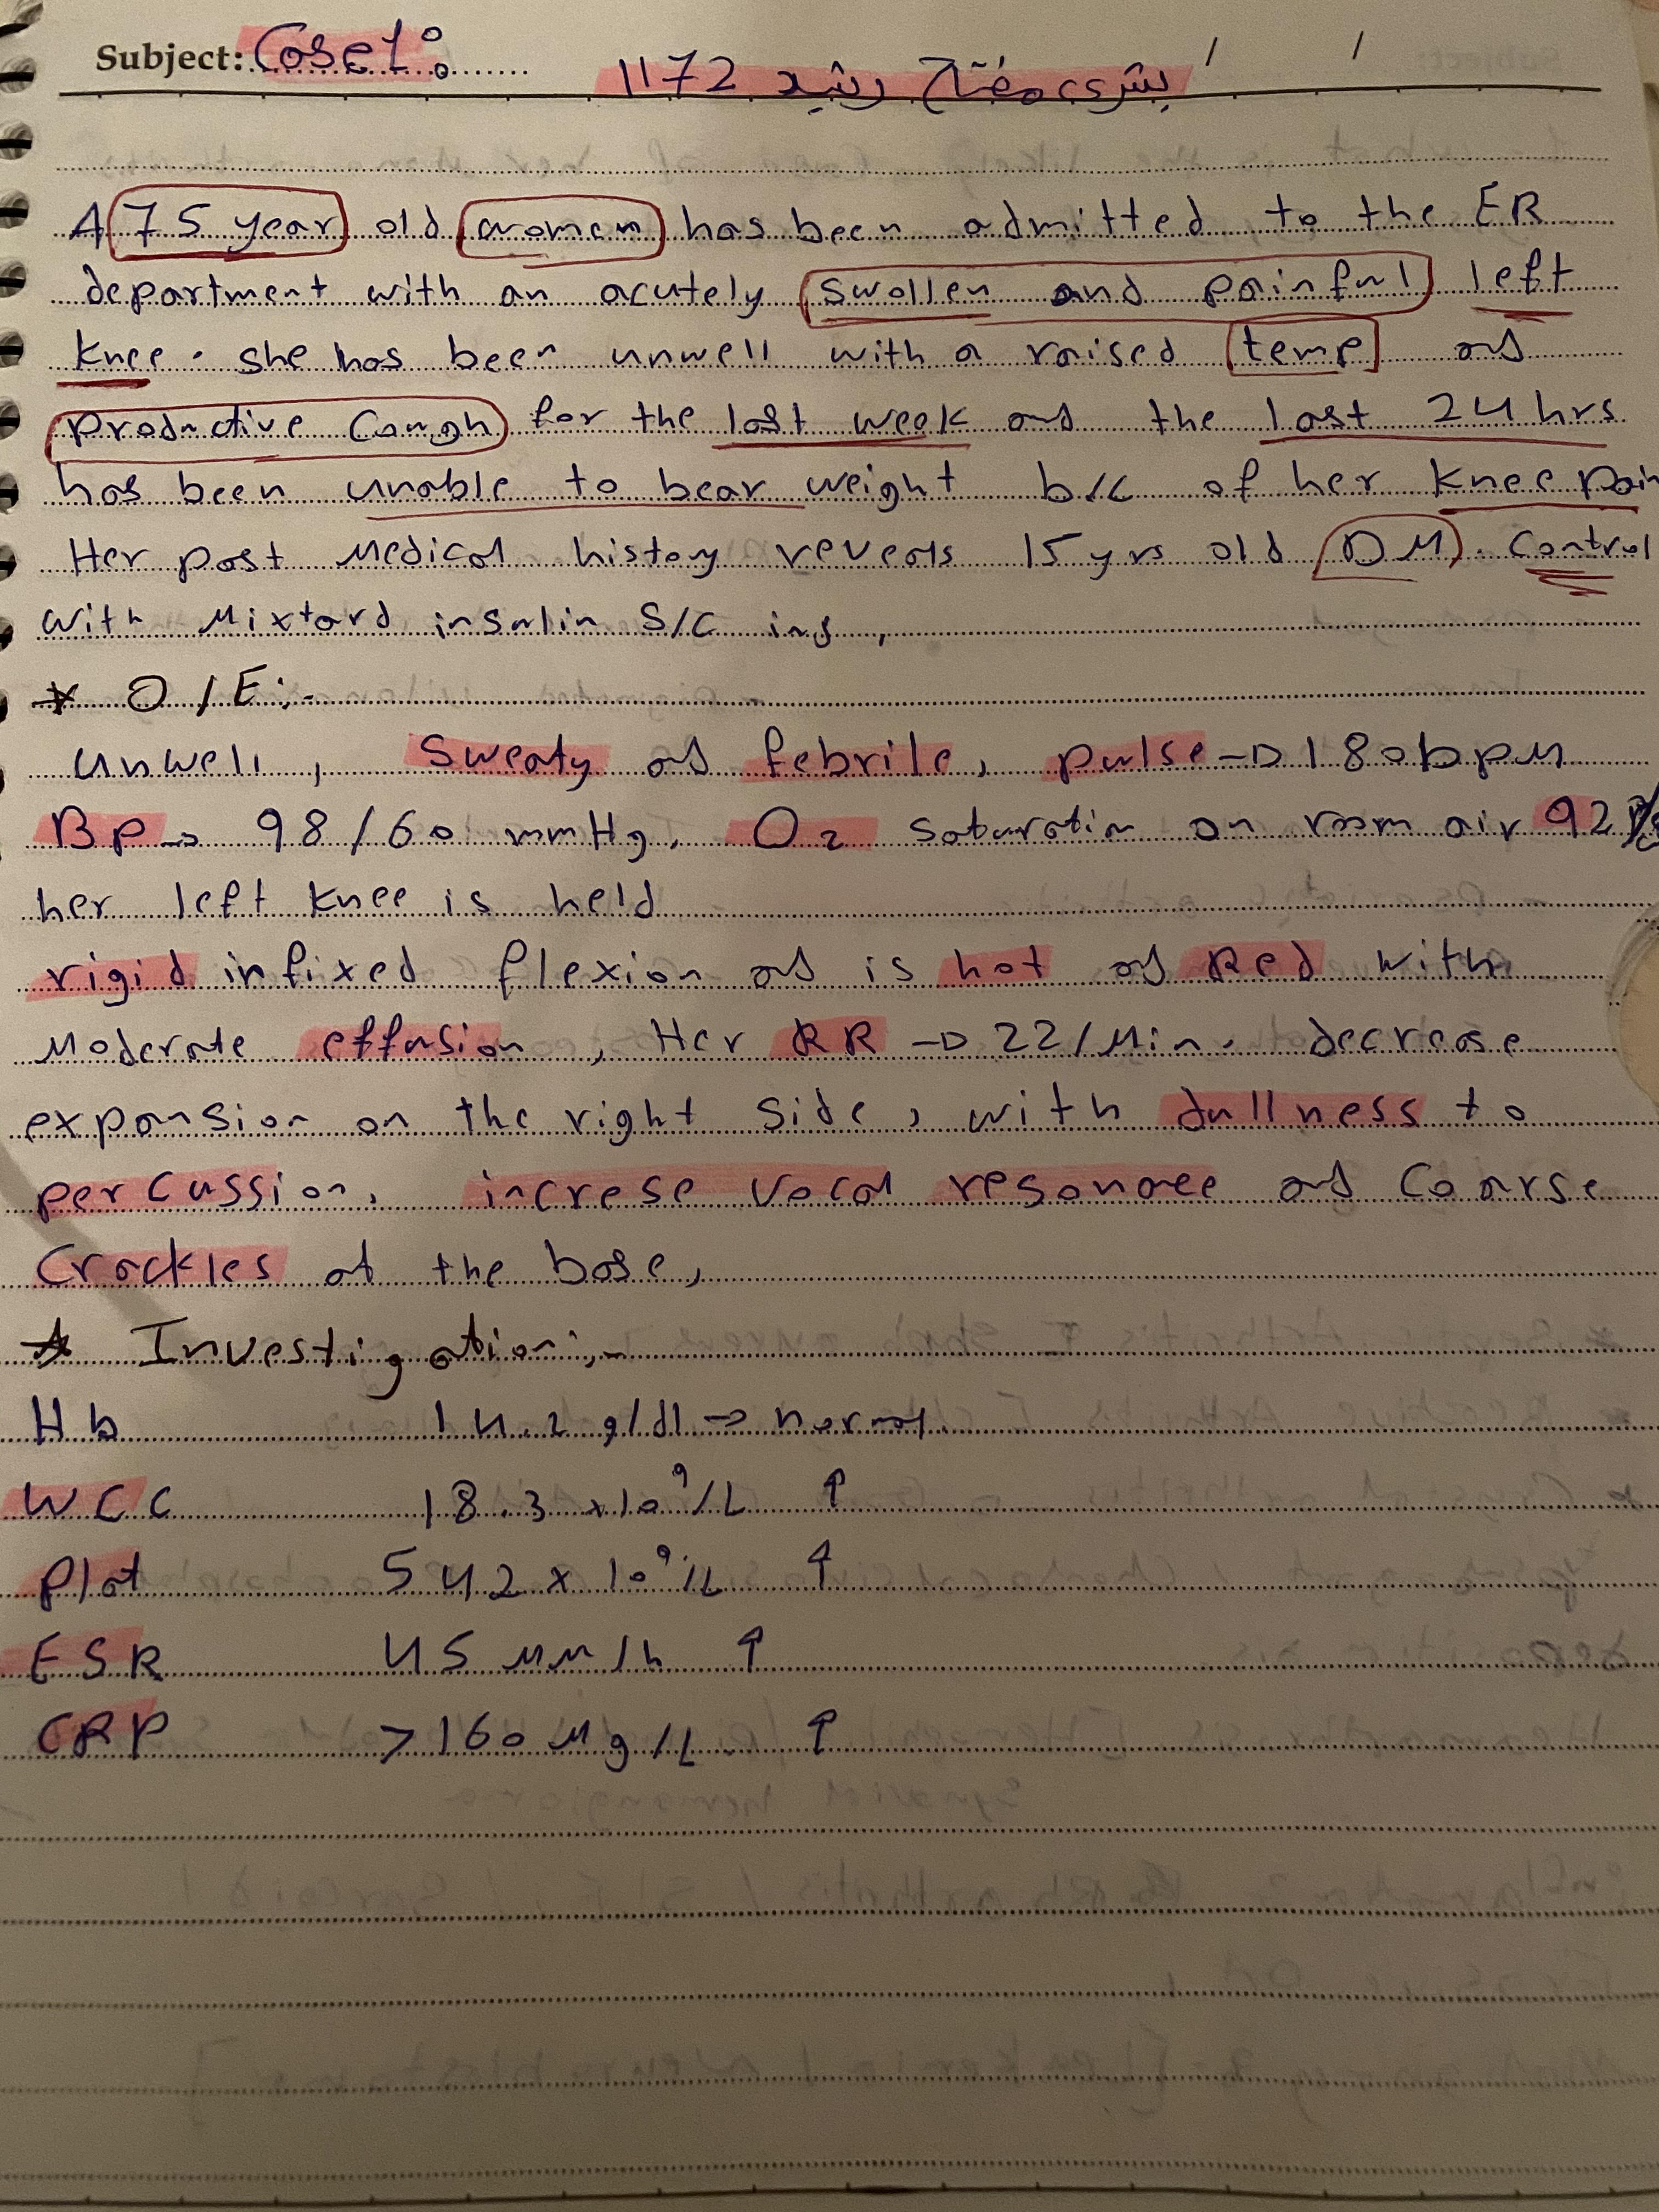 Subject: Case1:
بشرى مفتاح رشيد 1172
A 75 year old women has been admitted, to the ER
department with an acutely swollen and painful left
knee. she has been unwell with a raised temp and
productive Cough for the last week and the last 24 hrs
has been unable to bear weight b/c of her knee pain
Her past Medical history reveals 15 yrs old DM. Control
with Mixtard insulin S/C inj,
* O/E:-
unwell, Sweaty and febrile, pulse → 180bpm
BP → 98/60 mmHg, O2 saturation on room air 92%
her left knee is held
rigid in fixed flexion and is hot and Red with
Moderate effusion, Her RR → 22/Min. decrease
expansion on the right side, with dullness to
percussion, increse vocal resonance and Coarse
Crackles at the base,
* Investigation:-
Hb 14.2 g/dl → normal
WCC 18.3 x10⁹/L ↑
Plat 542 x 10⁹/L ↑
ESR 45 mm/h ↑
CRP >160 Mg/L ↑